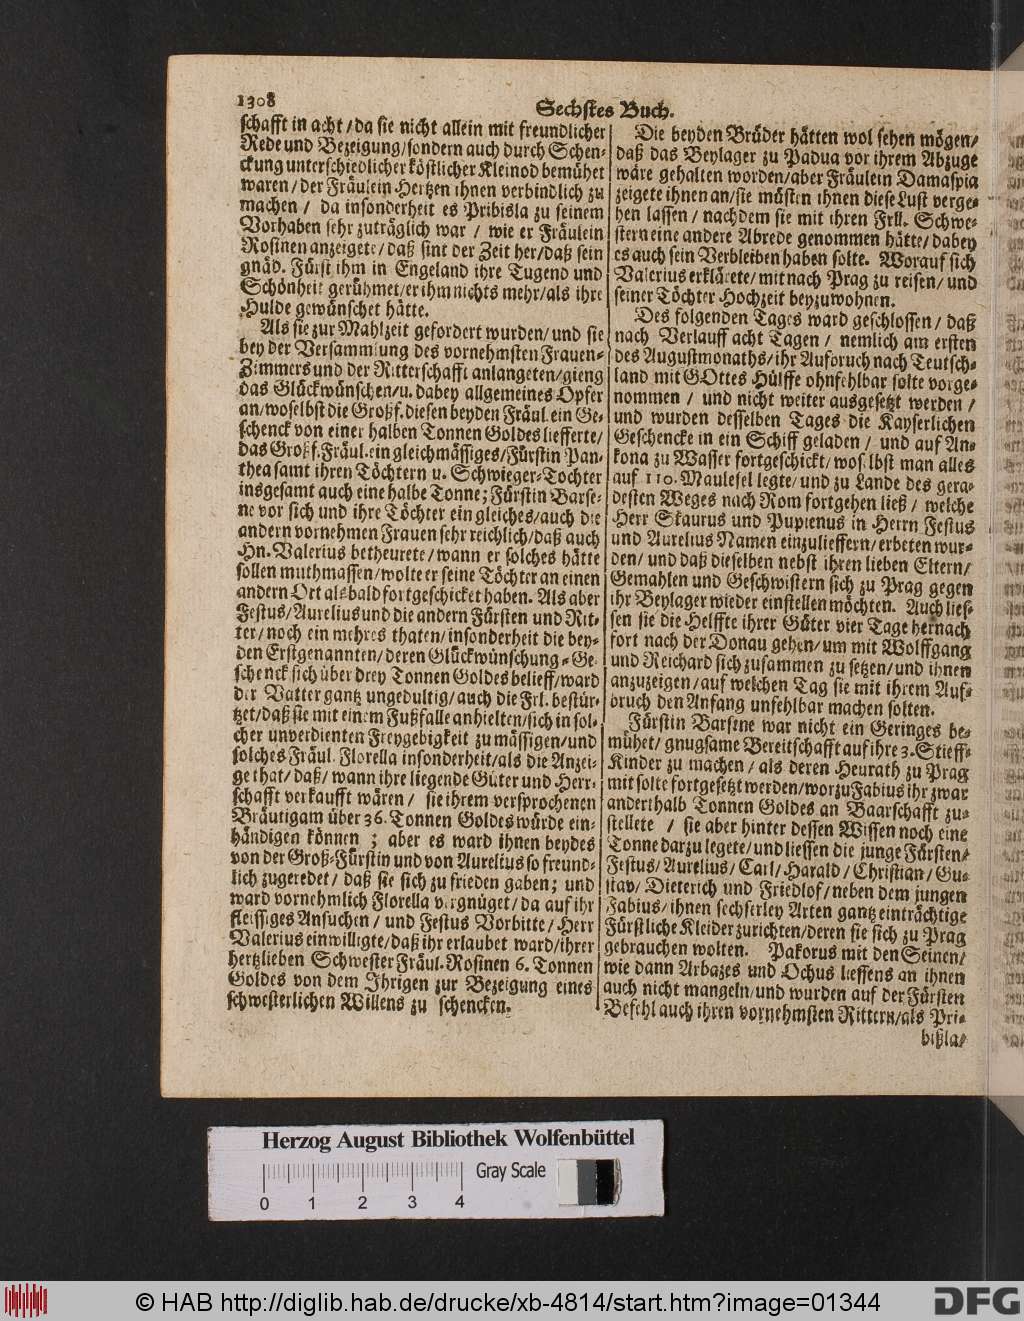 1308
Sechstes Buch.
schafft in acht / da sie nicht allein mit freundlicher
Rede und Bezeigung/sondern auch durch Schen-
ckung unterschiedlicher köstlicher Kleinod bemühet
waren / der Fräulein Hertzen ihnen verbindlich zu
machen / da insonderheit es Pribisla zu seinem
Vorhaben sehr zuträglich war / wie er Fräulein
Rosinen anzeigete/daß sint der Zeit her/daß sein
gnäd. Fürst ihm in Engeland ihre Tugend und
Schönheit gerühmet/er ihm nichts mehr/als ihre
Hulde gewünschet hätte.
Als sie zur Mahlzeit gefordert wurden/und sie
bey der Versammlung des vornehmsten Frauen-
Zimmers und der Ritterschafft anlangeten/gieng
das Glückwünschen/u. dabey allgemeines Opfer
an/woselbst die Großf. diesen beyden Fräul. ein Ge-
schenck von einer halben Tonnen Goldes liefferte/
das Großf. Fräul. ein gleichmässiges/Fürstin Pan-
thea samt ihren Töchtern u. Schwieger-Tochter
insgesamt auch eine halbe Tonne; Fürstin Barse-
ne vor sich und ihre Töchter ein gleiches/auch die
andern vornehmen Frauen sehr reichlich/daß auch
Hn. Valerius betheurete/wann er solches hätte
sollen muthmassen/wolte er seine Töchter an einen
andern Ort alsbald fortgeschicket haben. Als aber
Festus/Aurelius und die andern Fürsten und Rit-
ter/noch ein mehres thaten/insonderheit die bey-
den Erstgenannten/deren Glückwünschung-Ge-
schenck sich über drey Tonnen Goldes belieff/ward
der Vatter gantz ungedultig/auch die Frl. bestür-
tzet/daß sie mit einem Fußfalle anhielten/sich in sol-
cher unverdienten Freygebigkeit zu mässigen/und
solches Fräul. Florella insonderheit/als die Anzei-
ge that/daß/wann ihre liegende Güter und Herr-
schafft verkaufft wären / sie ihrem versprochenen
Bräutigam über 36. Tonnen Goldes würde ein-
händigen können ; aber es ward ihnen beydes
von der Groß-Fürstin und von Aurelius so freund-
lich zugeredet/ daß sie sich zu frieden gaben; und
ward vornehmlich Florella vergnüget/da auf ihr
fleissiges Ansuchen / und Festus Vorbitte / Herr
Valerius einwilligte/daß ihr erlaubet ward/ihrer
hertzlieben Schwester Fräul. Rosinen 6. Tonnen
Goldes von dem Ihrigen zur Bezeigung eines
schwesterlichen Willens zu schencken.
Die beyden Brüder hätten wol sehen mögen/
daß das Beylager zu Padua vor ihrem Abzuge
wäre gehalten worden/aber Fräulein Damaspia
zeigete ihnen an/sie müsten ihnen diese Lust verge-
hen lassen / nachdem sie mit ihren Frll. Schwe-
stern eine andere Abrede genommen hätte/dabey
es auch sein Verbleiben haben solte. Worauf sich
Valerius erklärete/mit nach Prag zu reisen/und
seiner Töchter Hochzeit beyzuwohnen.
Des folgenden Tages ward geschlossen / daß
nach Verlauff acht Tagen / nemlich am ersten
des Augustmonaths/ihr Aufbruch nach Teutsch-
land mit GOttes Hülffe ohnfehlbar solte vorge-
nommen / und nicht weiter ausgesetzt werden /
und wurden desselben Tages die Kayserlichen
Geschencke in ein Schiff geladen / und auf An-
kona zu Wasser fortgeschickt/woselbst man alles
auf 110. Maulesel legte/und zu Lande des gera-
desten Weges nach Rom fortgehen ließ / welche
Herr Skaurus und Pupienus in Herrn Festus
und Aurelius Namen einzulieffern/erbeten wur-
den/und daß dieselben nebst ihren lieben Eltern/
Gemahlen und Geschwistern sich zu Prag gegen
ihr Beylager wieder einstellen möchten. Auch lies-
sen sie die Helffte ihrer Güter vier Tage hernach
fort nach der Donau gehen/um mit Wolffgang
und Reichard sich zusammen zu setzen/und ihnen
anzuzeigen/auf welchen Tag sie mit ihrem Auf-
bruch den Anfang unfehlbar machen solten.
Fürstin Barsene war nicht ein Geringes be-
mühet/gnugsame Bereitschafft auf ihre 3. Stieff-
Kinder zu machen / als deren Heurath zu Prag
mit solte fortgesetzt werden/worzu Fabius ihr zwar
anderthalb Tonnen Goldes an Baarschafft zu-
stellete / sie aber hinter dessen Wissen noch eine
Tonne darzu legete/und liessen die junge Fürsten/
Festus/Aurelius/Carl/Harald/Christian/Gu-
stav/Dieterich und Friedlof/neben dem jungen
Fabius/ihnen sechserley Arten gantz einträchtige
Fürstliche Kleider zurichten/deren sie sich zu Prag
gebrauchen wolten. Pakorus mit den Seinen/
wie dann Arbazes und Ochus liessens an ihnen
auch nicht mangeln/und wurden auf der Fürsten
Befehl auch ihren vornehmsten Rittern/als Pri-
bißla/
Herzog August Bibliothek Wolfenbüttel
Gray Scale
0 1 2 3 4
© HAB http://diglib.hab.de/drucke/xb-4814/start.htm?image=01344
DFG